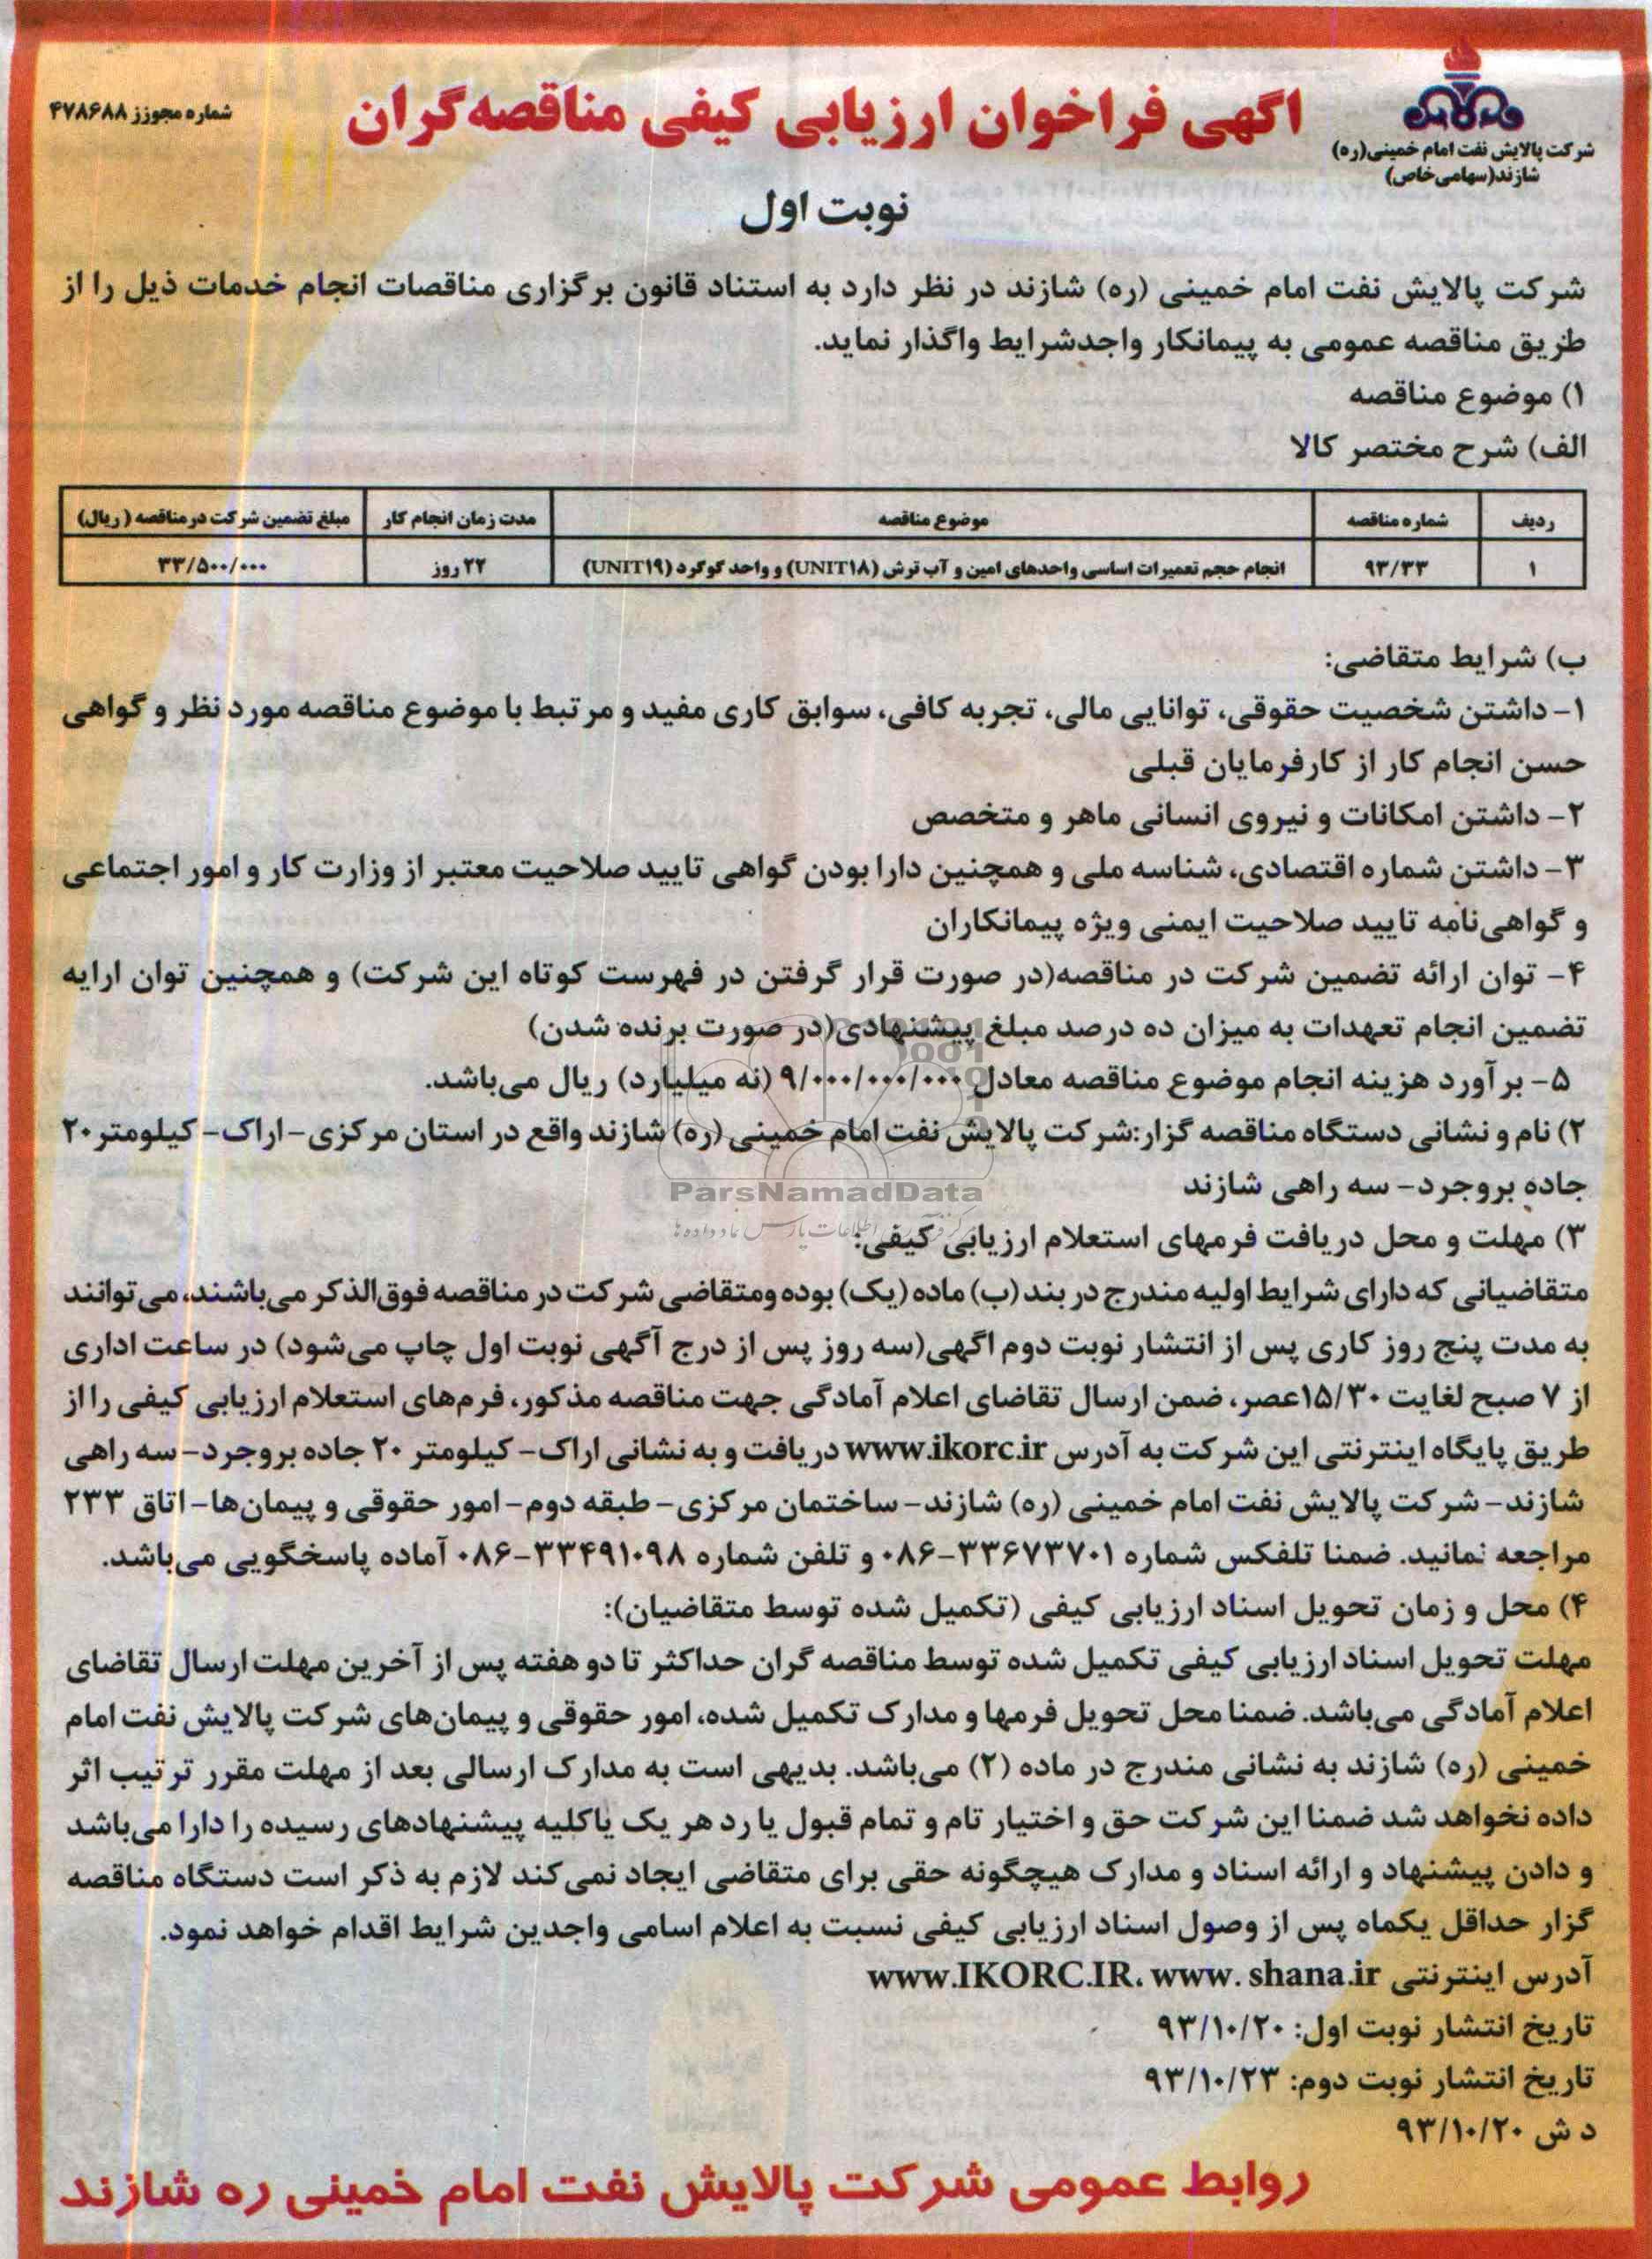 شرکت پالایش نفت امام خمینی(ره)
شازند(سهامی خاص)
اگهی فراخوان ارزیابی کیفی مناقصه گران
شماره مجوزز ۴۷۸۶۸۸
نوبت اول
شرکت پالایش نفت امام خمینی (ره) شازند در نظر دارد به استناد قانون برگزاری مناقصات انجام خدمات ذیل را از
طریق مناقصه عمومی به پیمانکار واجدشرایط واگذار نماید.
۱) موضوع مناقصه
الف) شرح مختصر کالا
ردیف شماره مناقصه موضوع مناقصه مدت زمان انجام کار مبلغ تضمین شرکت در مناقصه (ریال)
۱ ۹۳/۳۳ انجام حجم تعمیرات اساسی واحدهای امین و آب ترش (UNIT۱۸) و واحد گوگرد (UNIT۱۹) ۲۲ روز ۳۳/۵۰۰/۰۰۰
ب) شرایط متقاضی:
۱- داشتن شخصیت حقوقی، توانایی مالی، تجربه کافی، سوابق کاری مفید و مرتبط با موضوع مناقصه مورد نظر و گواهی
حسن انجام کار از کارفرمایان قبلی
۲- داشتن امکانات و نیروی انسانی ماهر و متخصص
۳- داشتن شماره اقتصادی، شناسه ملی و همچنین دارا بودن گواهی تایید صلاحیت معتبر از وزارت کار و امور اجتماعی
و گواهی‌نامه تایید صلاحیت ایمنی ویژه پیمانکاران
۴- توان ارائه تضمین شرکت در مناقصه(در صورت قرار گرفتن در فهرست کوتاه این شرکت) و همچنین توان ارایه
تضمین انجام تعهدات به میزان ده درصد مبلغ پیشنهادی(در صورت برنده شدن)
۵- برآورد هزینه انجام موضوع مناقصه معادل ۹/۰۰۰/۰۰۰/۰۰۰ (نه میلیارد) ریال می‌باشد.
۲) نام و نشانی دستگاه مناقصه گزار:شرکت پالایش نفت امام خمینی (ره) شازند واقع در استان مرکزی- اراک- کیلومتر ۲۰
جاده بروجرد- سه راهی شازند
ParsNamadData
۳) مهلت و محل دریافت فرمهای استعلام ارزیابی کیفی:
متقاضیانی که دارای شرایط اولیه مندرج در بند (ب) ماده (یک) بوده ومتقاضی شرکت در مناقصه فوق‌الذکر می‌باشند، می‌توانند
به مدت پنج روز کاری پس از انتشار نوبت دوم اگهی(سه روز پس از درج آگهی نوبت اول چاپ می‌شود) در ساعت اداری
از ۷ صبح لغایت ۱۵/۳۰عصر، ضمن ارسال تقاضای اعلام آمادگی جهت مناقصه مذکور، فرم‌های استعلام ارزیابی کیفی را از
طریق پایگاه اینترنتی این شرکت به آدرس www.ikorc.ir دریافت و به نشانی اراک- کیلومتر ۲۰ جاده بروجرد- سه راهی
شازند- شرکت پالایش نفت امام خمینی (ره) شازند- ساختمان مرکزی- طبقه دوم- امور حقوقی و پیمان‌ها- اتاق ۲۳۳
مراجعه نمانید. ضمنا تلفکس شماره ۳۳۶۷۳۷۰۱-۰۸۶ و تلفن شماره ۳۳۴۹۱۰۹۸-۰۸۶ آماده پاسخگویی می‌باشد.
۴) محل و زمان تحویل اسناد ارزیابی کیفی (تکمیل شده توسط متقاضیان):
مهلت تحویل اسناد ارزیابی کیفی تکمیل شده توسط مناقصه گران حداکثر تا دو هفته پس از آخرین مهلت ارسال تقاضای
اعلام آمادگی می‌باشد. ضمنا محل تحویل فرمها و مدارک تکمیل شده، امور حقوقی و پیمان‌های شرکت پالایش نفت امام
خمینی (ره) شازند به نشانی مندرج در ماده (۲) می‌باشد. بدیهی است به مدارک ارسالی بعد از مهلت مقرر ترتیب اثر
داده نخواهد شد ضمنا این شرکت حق و اختیار تام و تمام قبول یا رد هر یک یاکلیه پیشنهادهای رسیده را دارا می‌باشد
و دادن پیشنهاد و ارائه اسناد و مدارک هیچگونه حقی برای متقاضی ایجاد نمی‌کند لازم به ذکر است دستگاه مناقصه
گزار حداقل یکماه پس از وصول اسناد ارزیابی کیفی نسبت به اعلام اسامی واجدین شرایط اقدام خواهد نمود.
آدرس اینترنتی www.IKORC.IR، www. shana.ir
تاریخ انتشار نوبت اول: ۹۳/۱۰/۲۰
تاریخ انتشار نوبت دوم: ۹۳/۱۰/۲۳
د ش ۹۳/۱۰/۲۰
روابط عمومی شرکت پالایش نفت امام خمینی ره شازند